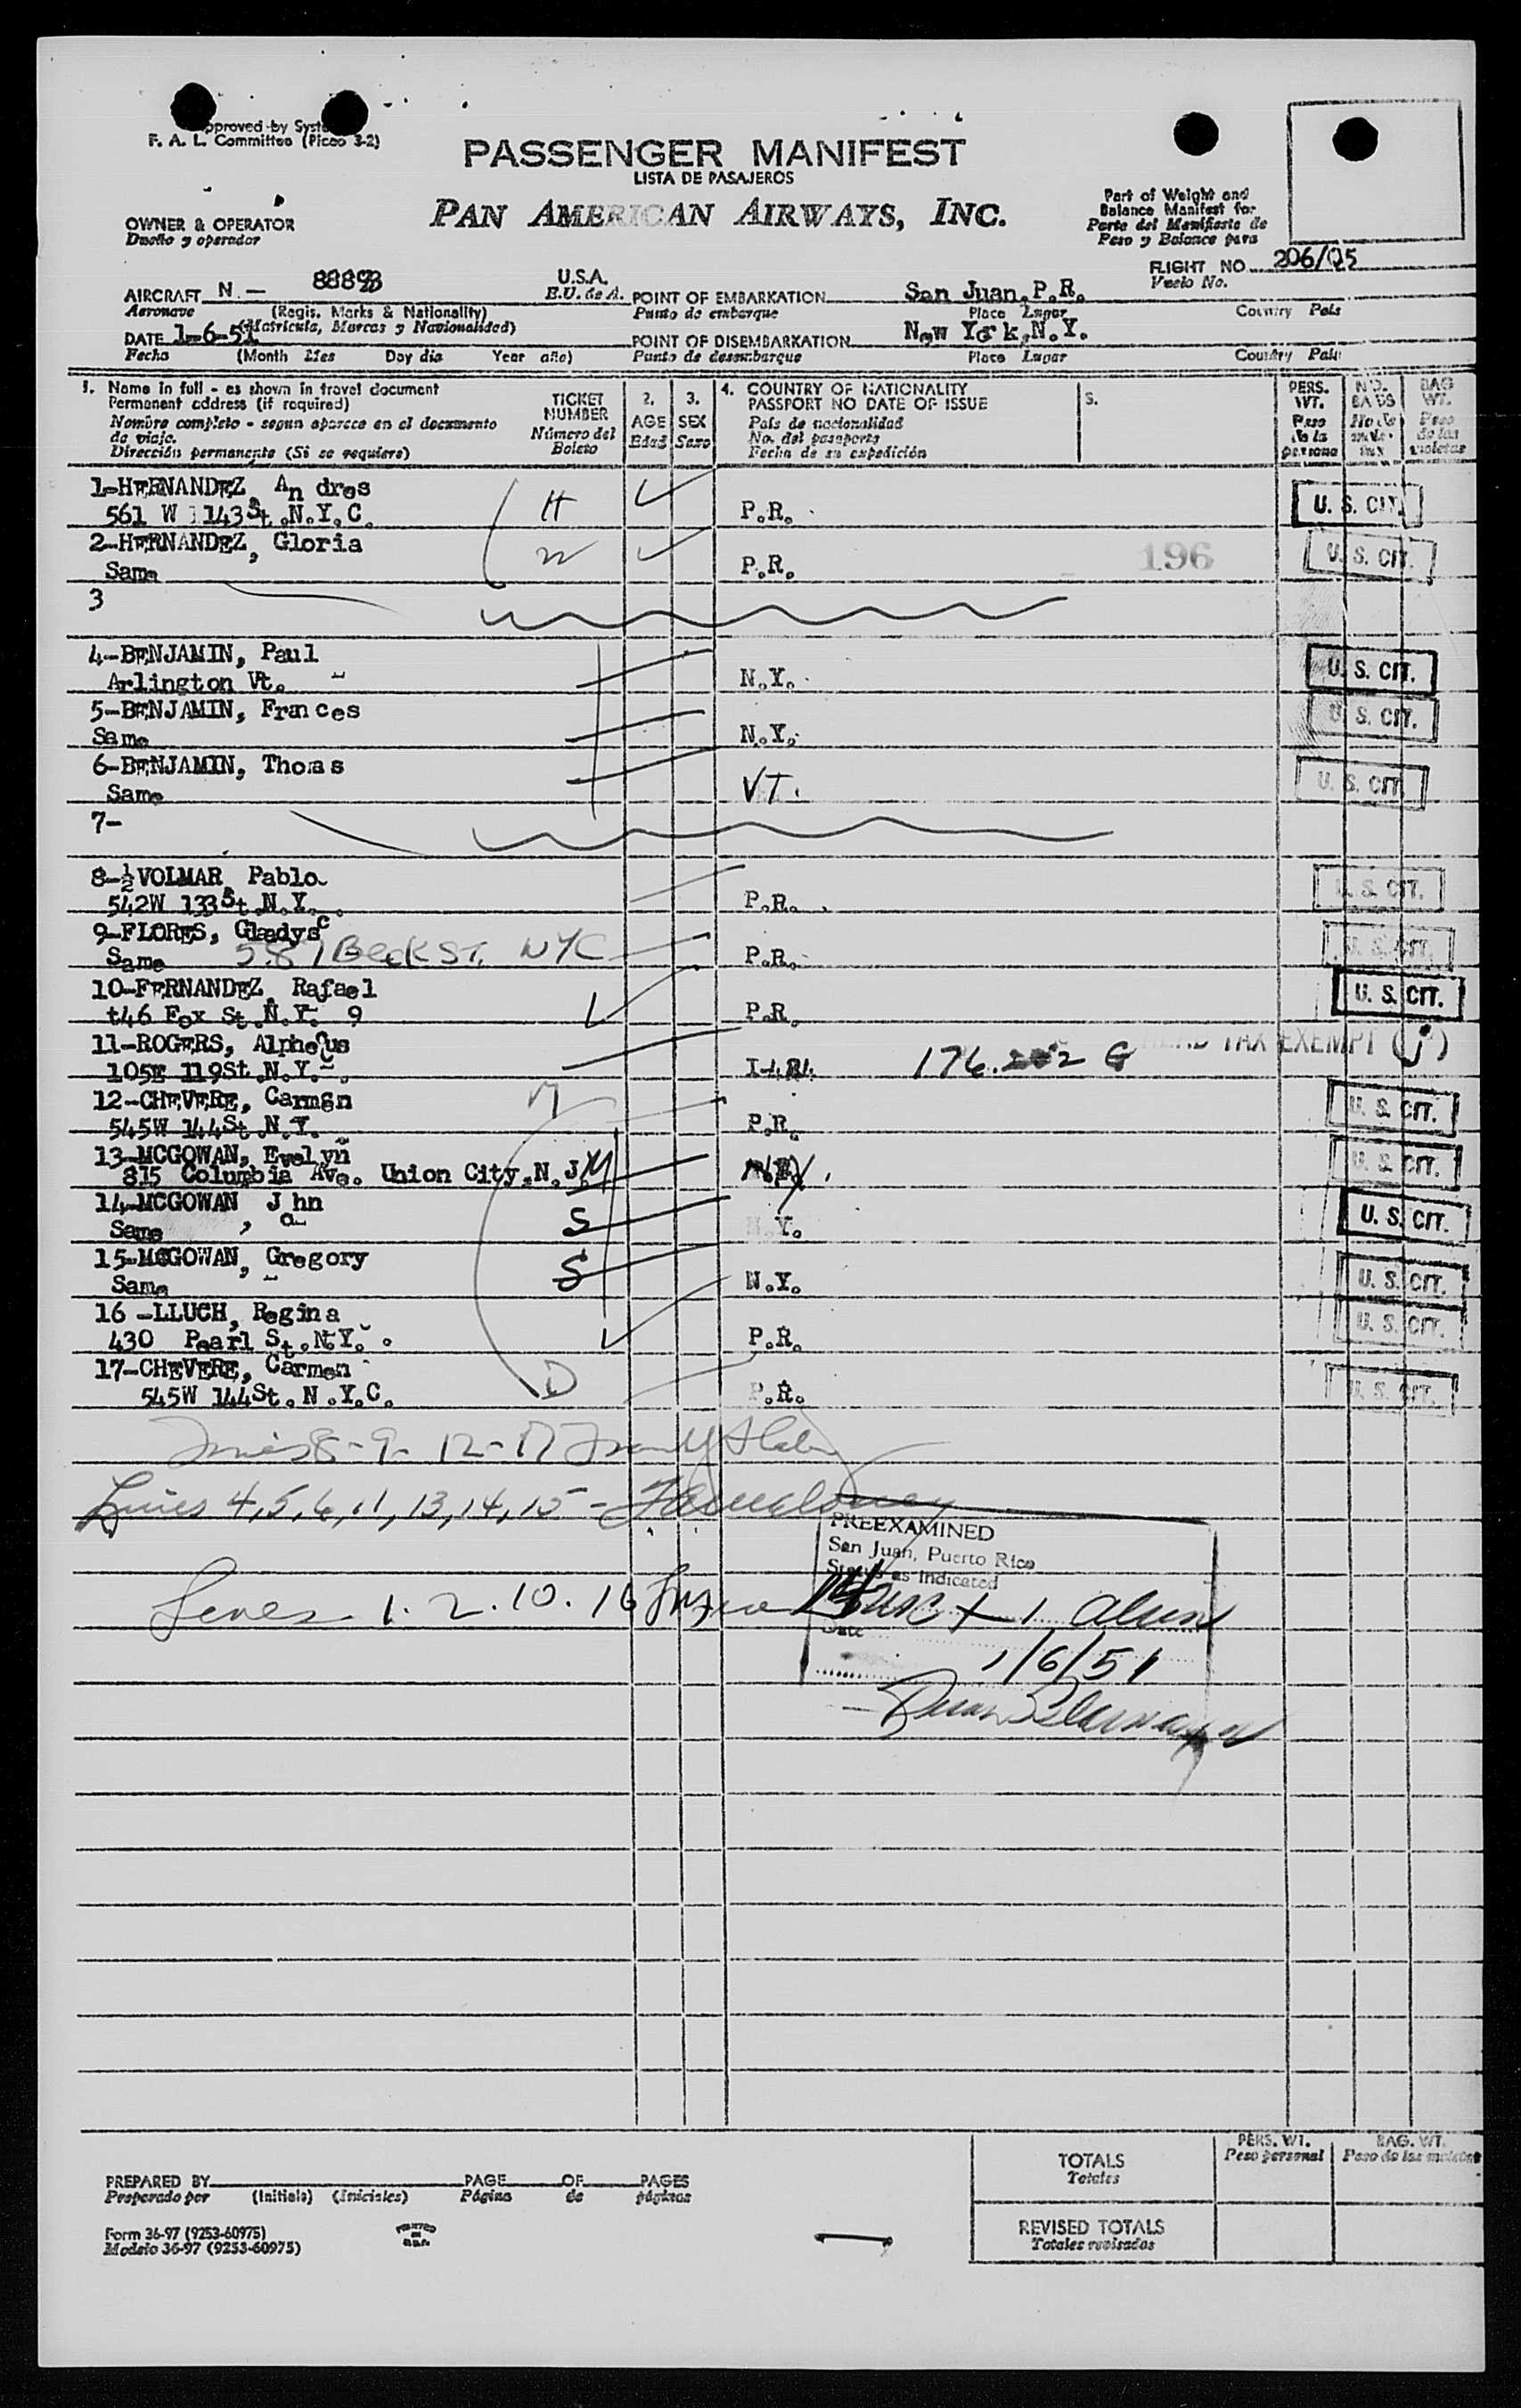 Approved by System
F. A. L. Committee (Picao 3-2)
PASSENGER MANIFEST
LISTA DE PASAJEROS
PAN AMERICAN AIRWAYS, INC.
OWNER & OPERATOR
Dueño y operador
Part of Weight and
Balance Manifest for
Parte del Manifiesto de
Peso y Balance para
FLIGHT NO. 206/05
Vuelo No.
AIRCRAFT N — 88898 U.S.A.
Aeronave (Regis. Marks & Nationality) E.U. de A.
(Matricula, Marcas y Nacionalidad)
POINT OF EMBARKATION San Juan, P.R.
Punto de embarque Place Lugar Country Pais
DATE 1-6-51
Fecha (Month Mes Day dia Year año)
POINT OF DISEMBARKATION New York, N.Y.
Punto de desembarque Place Lugar Country Pais
1. Name in full - as shown in travel document
Permanent address (if required)
Nombre completo - segun aparece en el documento
de viaje.
Dirección permanente (Si se requiere)
TICKET
NUMBER
Número del
Boleto
2.
AGE
Edad
3.
SEX
Sexo
4. COUNTRY OF NATIONALITY
PASSPORT NO DATE OF ISSUE
Pais de nacionalidad
No. del pasaporte
Fecha de su expedición
5.
PERS.
WT.
Peso
de la
persona
NO.
BAGS
No de
BAG
WT.
Peso
de las
maletas
1-HERNANDEZ, Andres
561 W 143 St. N.Y.C. H P.R. U. S. CIT.
2-HERNANDEZ, Gloria
Same W P.R. 196 U. S. CIT.
3
4-BENJAMIN, Paul
Arlington Vt. N.Y. U. S. CIT.
5-BENJAMIN, Frances
Same N.Y. U. S. CIT.
6-BENJAMIN, Thomas
Same VT. U. S. CIT.
7-
8-½VOLMAR, Pablo
542W 133St. N.Y. P.R. U. S. CIT.
9-FLORES, Gladys C
Same 581 Beck St. NYC P.R. U. S. CIT.
10-FERNANDEZ, Rafael
t46 Fox St. N.Y. 9 P.R. U. S. CIT.
11-ROGERS, Alpheus
105E 119St. N.Y. HEAD TAX EXEMPT (j)
12-CHEVERE, Carmen
545W 144St. N.Y. M P.R. U. S. CIT.
13-MCGOWAN, Evelyn
815 Columbia Ave. Union City, N.J. M U. S. CIT.
14-MCGOWAN, John
Same S N.Y. U. S. CIT.
15-MCGOWAN, Gregory
Same S N.Y. U. S. CIT.
16-LLUCH, Regina
430 Pearl St. N.Y. P.R. U. S. CIT.
17-CHEVERE, Carmen
545W 144St. N.Y.C. D P.R. U. S. CIT.
8-9-12-17
Lines 4,5,6,11,13,14,15 -
PREEXAMINED
San Juan, Puerto Rico
Status as indicated
Lines 1. 2. 10. 16 + 1 alien
Date
1/6/51
PREPARED BY PAGE OF PAGES
Preparado por (Initials) (Iniciales) Página de páginas
Form 36-97 (9253-60975)
Modelo 36-97 (9253-60975)
PRINTED
IN
U.S.A.
PERS. WT.
Peso personal
BAG. WT.
Peso de las maletas
TOTALS
Totales
REVISED TOTALS
Totales revisados